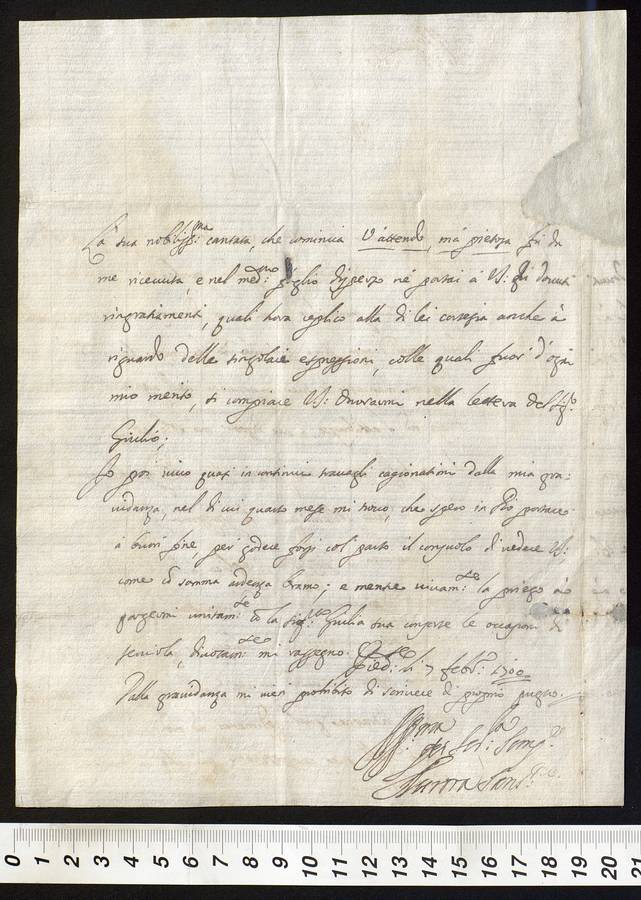 La sua nobiliss:ma cantata, che comincia V'attendo, mà pietosa fù da
me riceuuta, e nel med:mo foglio disperso né portai à VS: gli douuti
ringratiamenti, quali hora replico alla di lei cortesia anche à
riguardo delle singolari espressioni, colle quali fuor d'ogni
mio merito, si compiace VS: onorarmi nella lettera del Sig:r
Giulio;
Io poi viuo quasi in continui trauagli cagionatimi dalla mia gra-
uidanza, nel di cui quarto mese mi trouo, che spero in Dio portare
à buon fine per godere forsi col parto il consuolo di vedere VS:
come cō somma ardenza bramo; e mentre viuam:te la priego à
porgermi unitam:te cō la Sig:ra Giulia sua conserte le occasioni di
seruirla, diuotam:te mi rassegno. Pied:te li 7 febr:o 1700
Dalla grauidanza mi uien proibito di scriuere di proprio pugno.
Aff:ma
per ser:la sempre
Aurora Sans:no
0 1 2 3 4 5 6 7 8 9 10 11 12 13 14 15 16 17 18 19 20 21